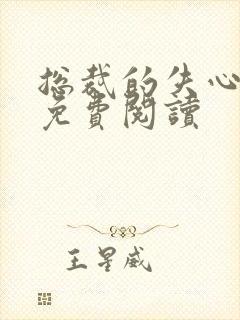 总裁的失心
免費閱讀
王星威